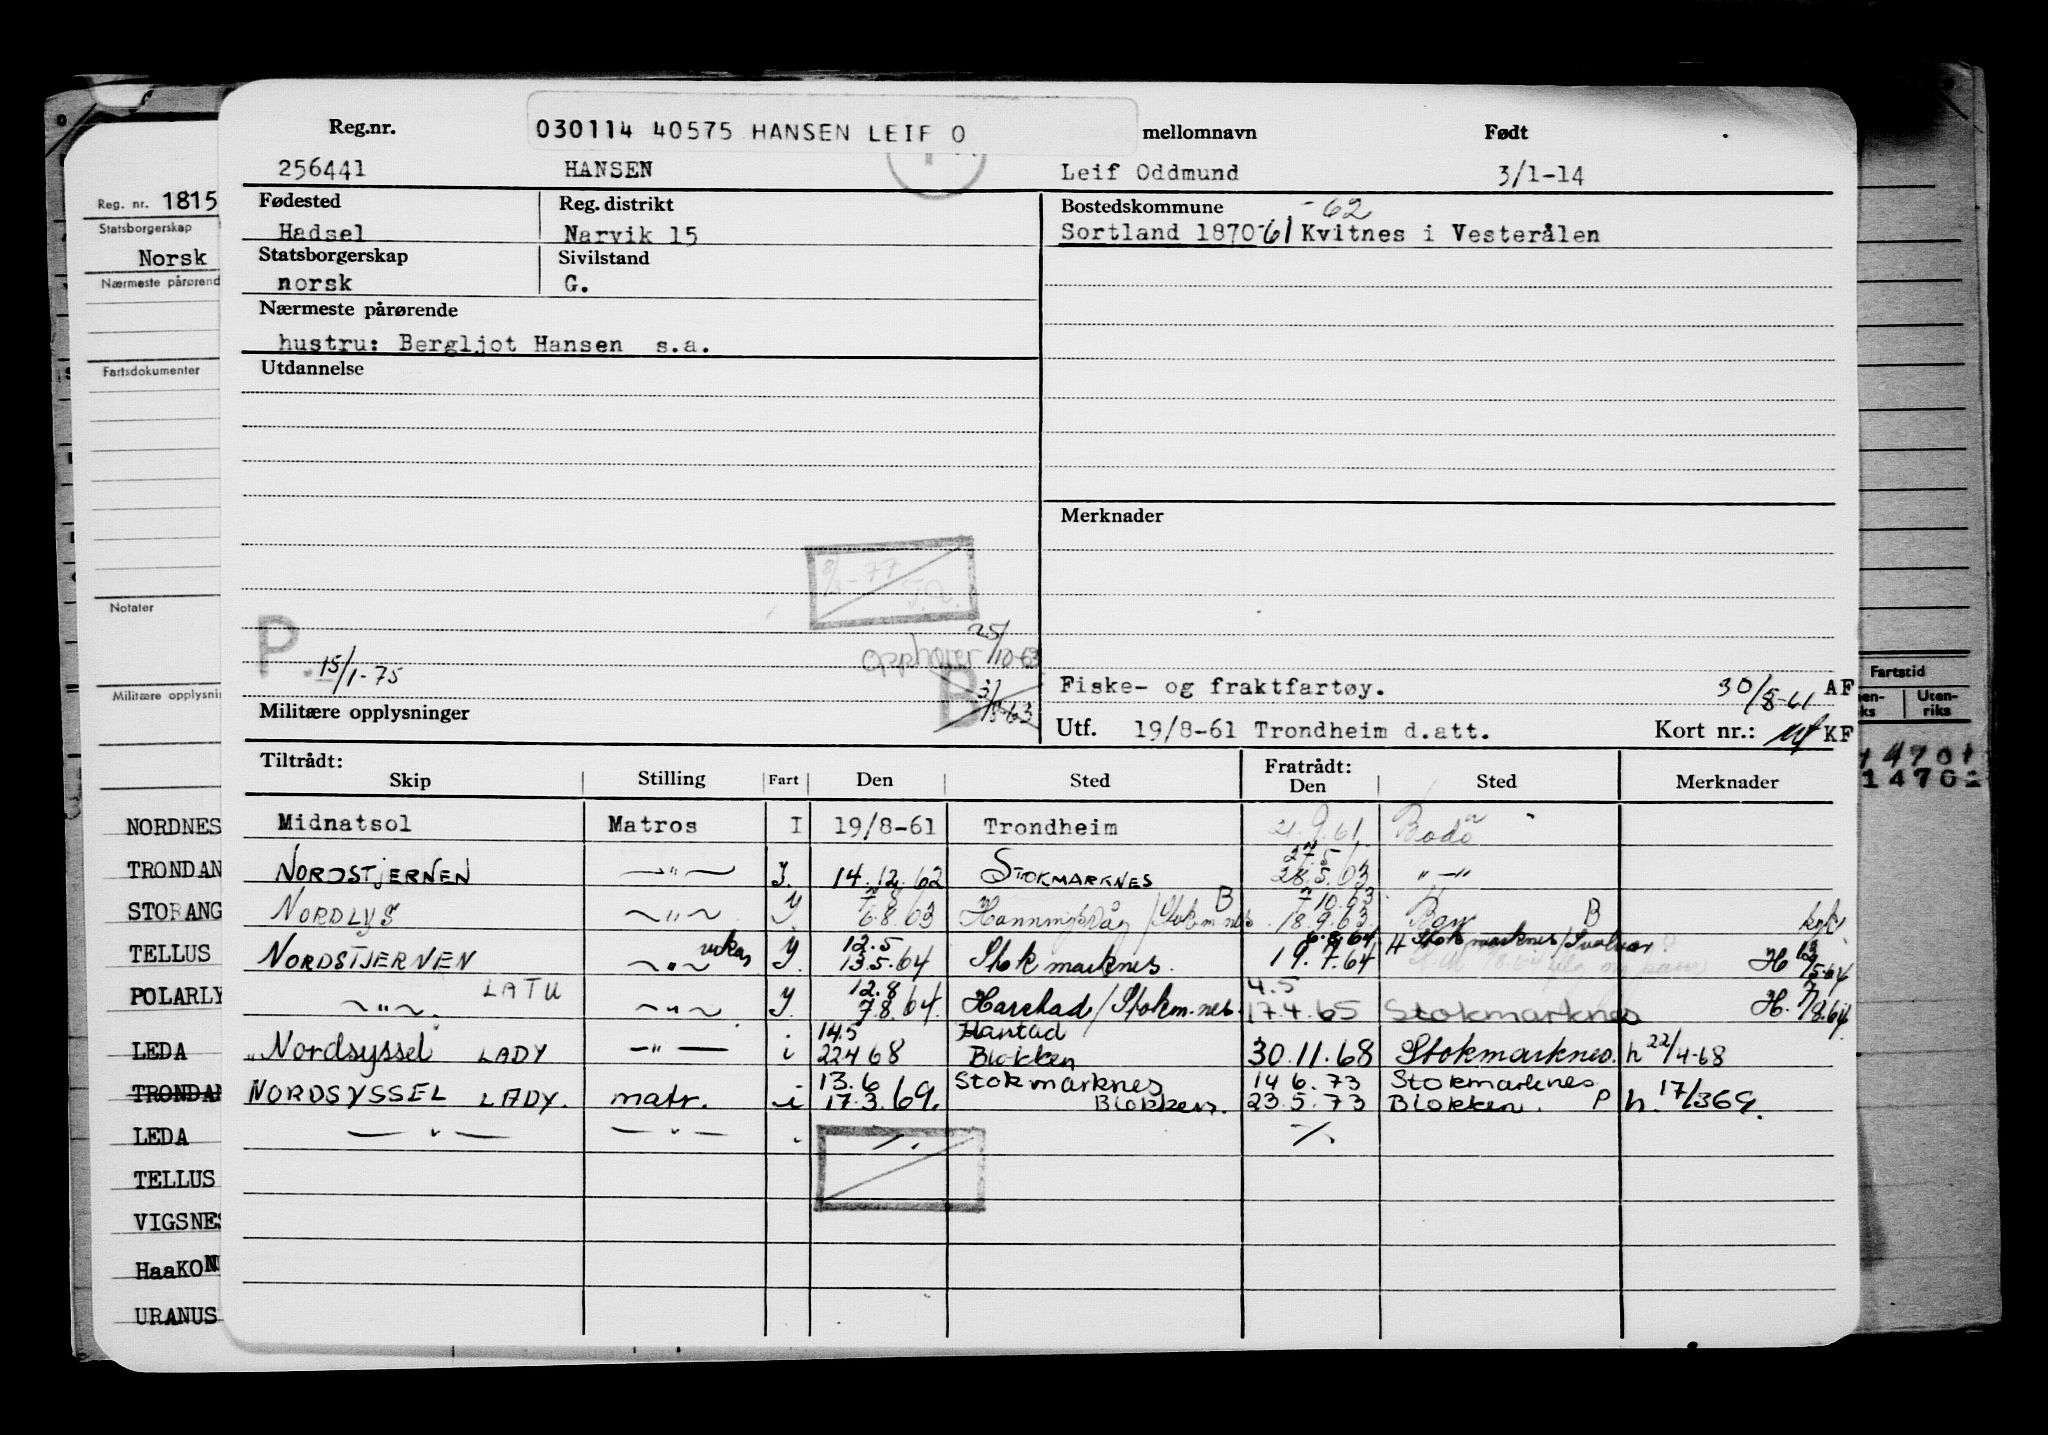 030114 40575 HANSEN LEIF O
Reg.nr. mellomnavn Født
256441 HANSEN Leif Oddmund 3/1-14
Fødested Reg. distrikt Bostedskommune -62
Hadsel Narvik 15 Sortland 1870-61 Kvitnes i Vesterålen
Statsborgerskap Sivilstand
norsk G.
Nærmeste pårørende
hustru: Bergljot Hansen s.a.
Utdannelse
Merknader
8/3-77
P. 15/1-75
Opphører 25/10-63
B 3/
Fiske- og fraktfartøy. 30/8-61 AF
Militære opplysninger
Utf. 19/8-61 Trondheim d.att. Kort nr.: KF
Tiltrådt: Fratrådt:
Skip Stilling Fart Den Sted Den Sted Merknader
Midnatsol Matros I 19/8-61 Trondheim 21.9.61 Bodø
27.5
NORDSTJERNEN —"— I. 14.12.62 STOKMARKNES 28.5.63 "—"
7.8 B 7.10.63 H
NORDLYS —"— I 6.8.63 Honningsvåg / Stokm.nes 18.9.63 B
vikar 12.5 6.8.64 H Stokmarknes / Svolvær
NORDSTJERNEN —"— I 13.5.64 Stokmarknes. 19.7.64 H 13/5-64
LATU 12.8 4.5
—"— —"— I 7.8.64. Harstad / Stokm.nes. 17.4.65 Stokmarknes H. 7/8.64
14.5 Harstad
"Nordsyssel LADY —"— i 22.4 68 Blokken 30.11.68 Stokmarknes. h 22/4-68
13.6 Stokmarknes 14 6.73 Stokmarknes
NORDSYSSEL LADY. matr. i 17.3.69. Blokken. 23.5.73 Blokken. P h. 17/369.
—"— —"— i ./. ./.
Reg. nr. 1815
Statsborgerskap
Norsk
Nærmeste pårørend
Fartsdokumenter
Notater
Militære opplysnin
NORDNES
TRONDAN
STORANG
TELLUS
POLARLY
LEDA
TRONDAN
LEDA
TELLUS
VIGSNES
HaaKON
URANUS
Fartstid
Uten-
riks